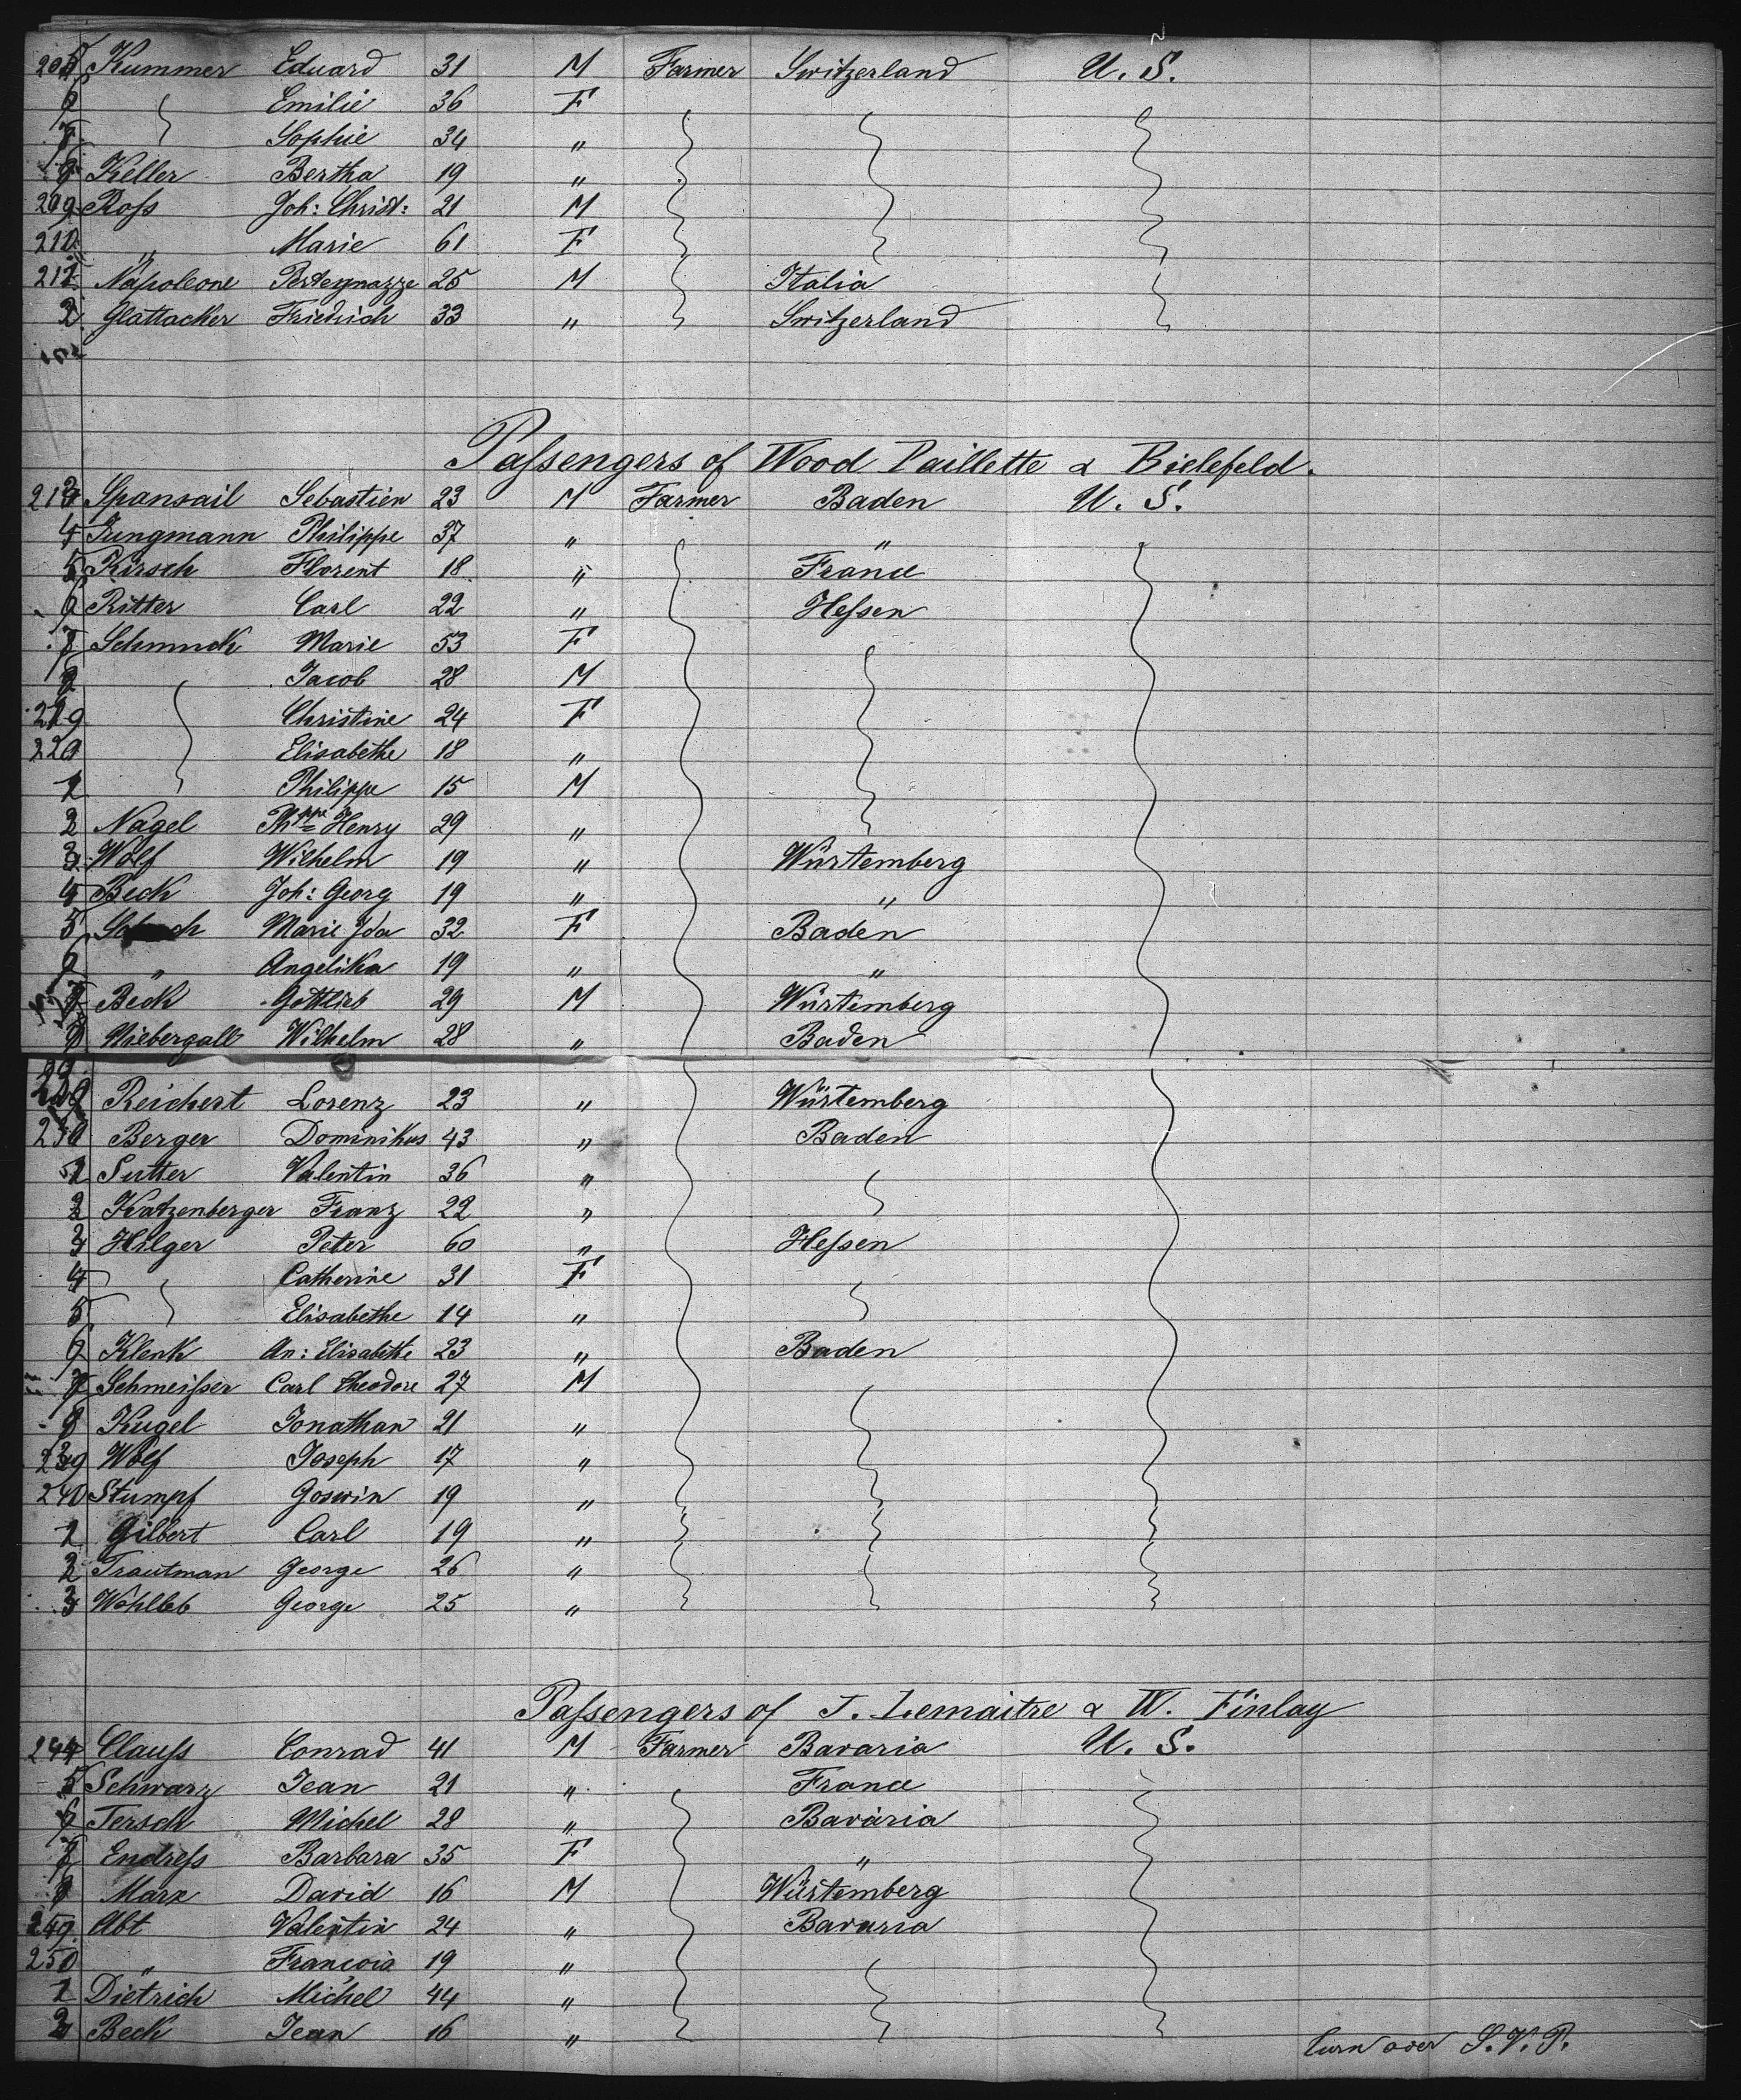 205 Kummer Eduard 31 M Farmer Switzerland U. S.
6 Emilie 36 F
7 Sophie 34 "
8 Keller Bertha 19 "
209 Roſs Joh: Christ: 21 M
210 " Marie 61 F
211 Napoleone 25 M Italia
2 Glattacker Friedrich 33 " Switzerland
Paſsengers of Wood Paillette & Bielefeld.
213 Spansail Sebastien 23 M Farmer Baden U. S.
4 Jungmann Philippe 37 " "
5 Kirsch Florent 18 " France
6 Ritter Carl 22 " Heſsen
7 Schmuck Marie 53 F
8 Jacob 28 M
219 Christine 24 F
220 Elisabethe 18 "
1 Philippe 15 M
2 Nagel Phppe Henry 29 "
3 Wolf Wilhelm 19 " Würtemberg
4 Beck Joh: Georg 19 " "
5 Marie Ida 32 F Baden
6 " Angelika 19 " "
7 Beck Gottlieb 29 M Würtemberg
8 Niebergall Wilhelm 28 " Baden
229 Reichert Lorenz 23 " Würtemberg
230 Berger Dominikus 43 " Baden
1 Sutter Valentin 36 "
2 Katzenberger Franz 22 "
3 Hilger Peter 60 " Heſsen
4 Catherine 31 F
5 Elisabethe 14 "
6 Klenk An: Elisabethe 23 " Baden
7 Schmeiſser Carl Theodore 27 M
8 Kugel Jonathan 21 "
239 Wolf Joseph 17 "
240 Stumpf Goswin 19 "
1 Gilbert Carl 19 "
2 Trautman George 26 "
3 Wohlleb George 25 "
Paſsengers of J. Lemaitre & W. Finlay
244 Clauſs Conrad 41 M Farmer Bavaria U. S.
5 Schwarz Jean 21 " France
6 Jersch Michel 28 " Bavaria
7 Endreſs Barbara 35 F "
8 Marx David 16 M Würtemberg
249 Abt Valentin 24 " Bavaria
250 " François 19 "
1 Dietrich Michel 44 "
2 Beck Jean 16 "
turn over S.V.P.